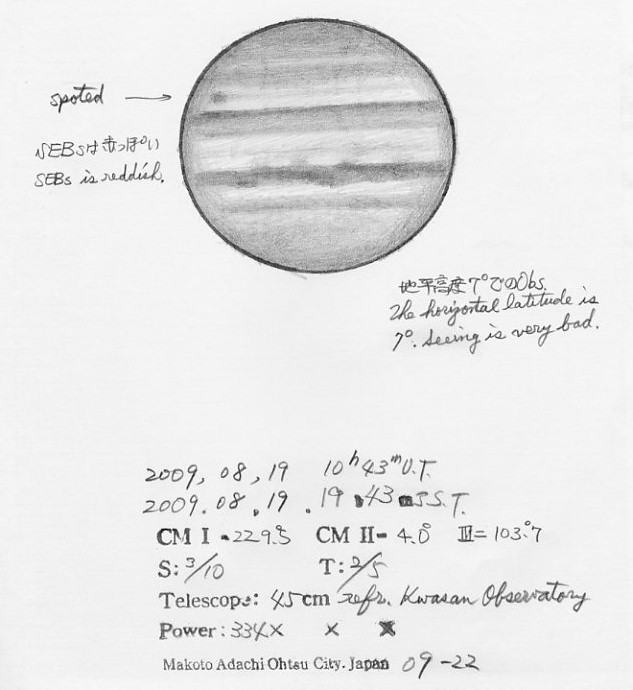 spoted
SEBsは赤っぽい
SEBs is reddish.
地平高度7°でのObs.
The horizontal latitude is
7°. Seeing is very bad.
2009, 08, 19 10h43mU.T.
2009.08.19. 19 43 J.S.T.
CM I 229.°5 CM II= 4.°0 III= 103.°7
S: 3/10 T: 2/5
Telescope: 45cm refr. Kwasan Observatory
Power: 334× × ×
Makoto Adachi Ohtsu City. Japan 09-22